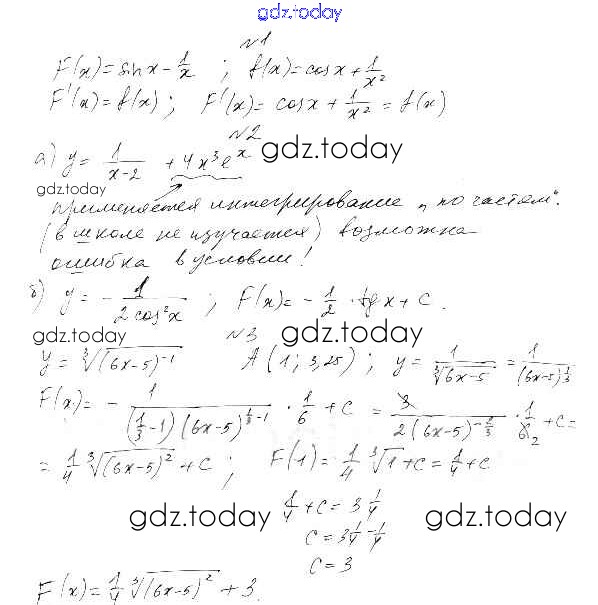 gdz.today
№1
F(x) = sin x - 1/x ; f(x) = cos x + 1/x²
F'(x) = f(x) ; F'(x) = cos x + 1/x² = f(x)
№2
а) y = 1/(x-2) + 4x³e^x gdz.today
gdz.today
применяется интегрирование „по частям“.
(в школе не изучается) возможна
ошибка в условии!
б) y = - 1/(2cos²x) ; F(x) = - 1/2 · tg x + C.
gdz.today №3 gdz.today
y = ∛((6x-5)⁻¹) A(1; 3,25) ; y = 1/∛(6x-5) = 1/(6x-5)^(1/3)
F(x) = - 1/((1/3 - 1)(6x-5)^(1/3 - 1)) · 1/6 + C = 3/(2(6x-5)^(-2/3)) · 1/6₂ + C =
= 1/4 ∛((6x-5)²) + C ; F(1) = 1/4 ∛1 + C = 1/4 + C
1/4 + C = 3 1/4
gdz.today C = 3 1/4 - 1/4 gdz.today
C = 3
F(x) = 1/4 ∛((6x-5)²) + 3.